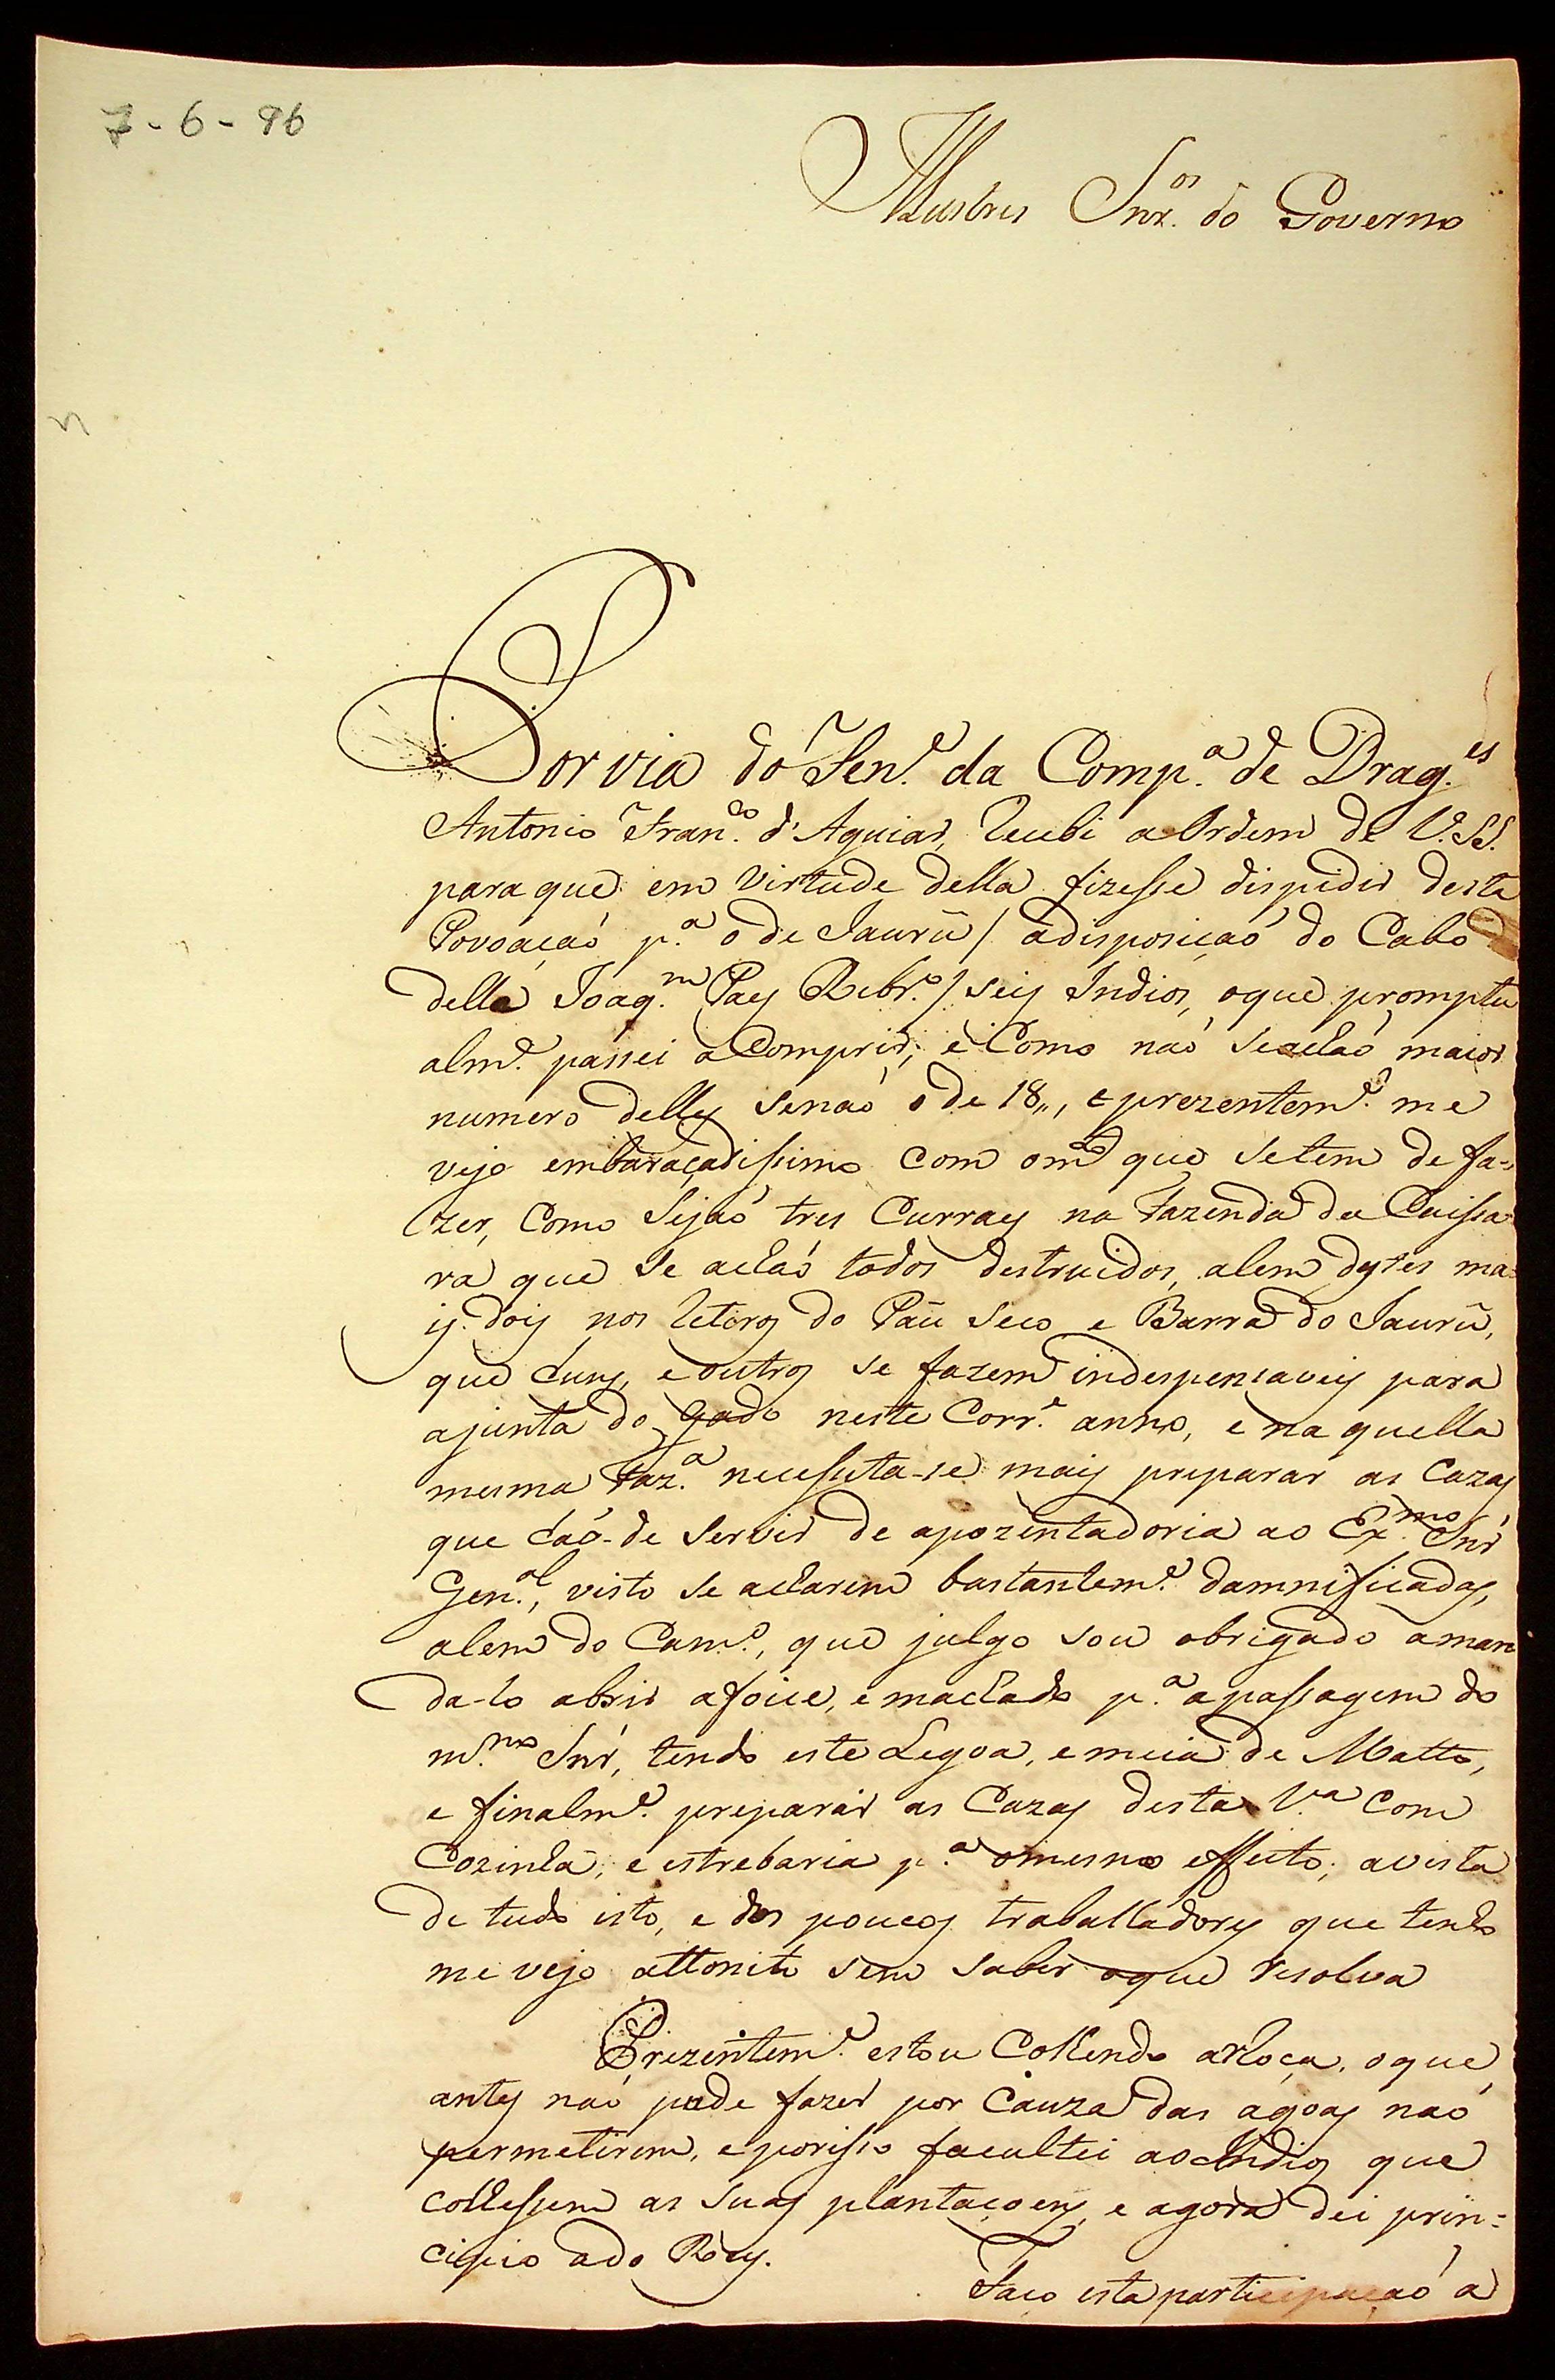 7-6-96
Illustres Snr.os do Governo
n
Por via do Ten.e da Comp.a de Drag.es
Antonio Fran.co d'Aguiar, recebi a Ordem de V.SS.
para que em virtude della fizesse dispidir desta
Povoaçaó p.a o de Jaurú / adisposiçaó do Cabo
delle Joaq.m Paes Ribr.o / seis Indios, oque promptu
alm.e passei a Comprir; e Como naó seachaó maior
numero delles senaó o de 18,,, e prezentem.e me
vejo embaraçadissimo com om.to que setem de fa-
zer, Como Sejaó tres Currays na Fazenda da Caissa
ra que se achaó todos destruidos, alem dystes ma
is doys nos retiros do Páu Seco e Barra do Jaurú,
que huns, e outros se fazem indespensaveis para
ajunta do gado neste Corr.e anno, e na quella
mesma Faz.a necessita-se mais preparar as Cazas
que háo-de Servir de apozentadoria ao Ex.mo Snr
Gen.al, visto se acharem bastantem.e damnificadas,
alem do Cam.o, que julgo sou obrigado aman
da-lo abrir afoice, e machado p.a apassagem do
m.mo Snr, tendo este Legoa, e meia de Matto,
e finalm.e preparar as Cazas desta V.a com
Cozinha, e estrebaria p.a omesmo effeito; avista
de tudo isto, e dos poucos trabalhadores que tenho
me vejo attonito sem saber oque resolva
Prezentem.e estou Colhendo aRoça, oque
antes naó pude fazer por Cauza das agoas naó
permetirem, e porisso facultei aos Indios que
colhessem as suas plantaçoens, e agora dei prin=
cipio ado Rey.
Faço esta participaçaó a